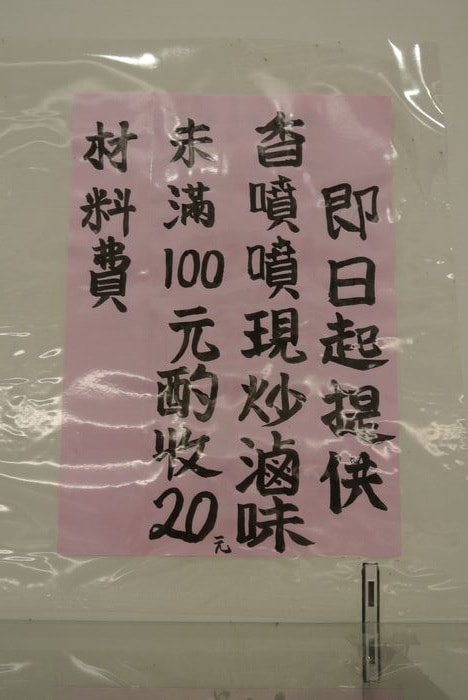 即日起提供
香噴噴現炒滷味
未滿100元酌收20元
材料費